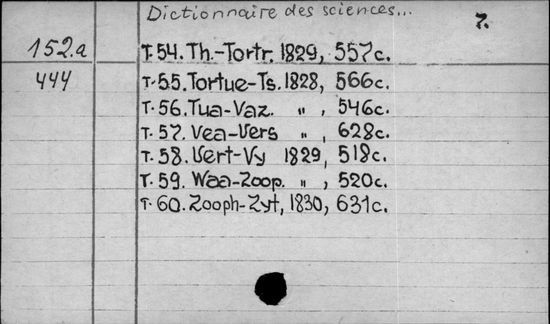 Dictionnaire des sciences... 7.
152.a T.54. Th.-Tortr. 1829, 557c.
444 T.55. Tortue-Ts. 1828, 566c.
T.56. Tua-Vaz. ", 546c.
T.57. Vea-Vers ", 628c.
T.58. Vert-Vy 1829, 518c.
T.59. Waa-Zoop. ", 520c.
T.60. Zooph-Zyt, 1830, 631c.